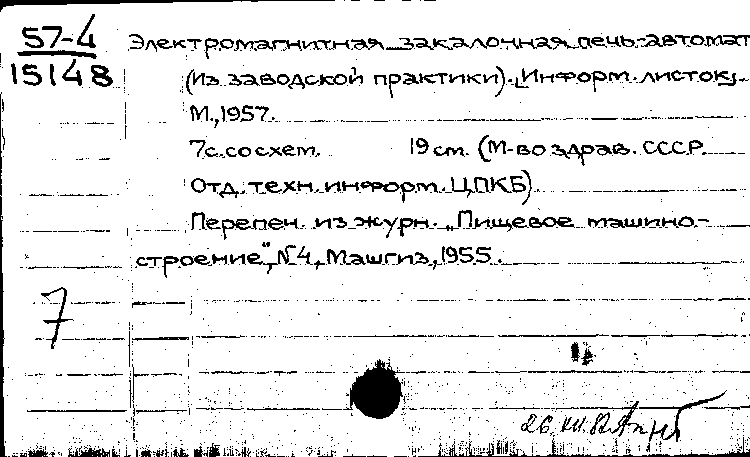 57-4
15148
Электромагнитная закалочная печь-автомат
(Из заводской практики). [Информ. листок].
М., 1957.
7с. со схем. 19 см. (М-во здрав. СССР.
Отд. техн. информ. ЦПКБ)
Перепеч. из журн. „Пищевое машино-
строение", N4, Машгиз, 1955.
7
26.XII.82